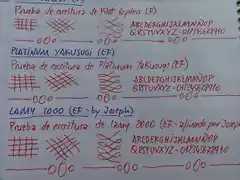 Prueba de escritura de Pilot (F)
ABCDEFGHIJKLMNÑOP
QRSTUVXYZ-
PLATINUM YAKUSUGI (EF)
Prueba de escritura de Platinum Yakusugi (EF)
ABCDEFGHIJKLMNÑOP
QRSTUVXYZ-
LAMY 2000 (EF - by Joseph)
Prueba de escritura de Lamy 2000 (EF - afinado por Joseph
ABCDEFGHIJKLMNÑOP
QRSTUVXYZ-